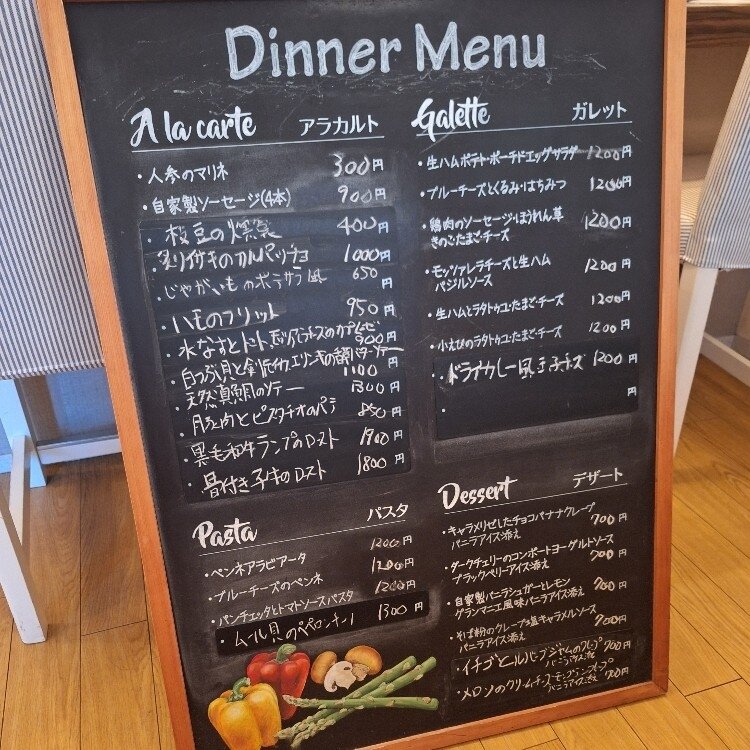 Dinner Menu
A la carte アラカルト
・人参のマリネ 300円
・自家製ソーセージ(4本) 900円
・枝豆の燻製 400円
のカルパッチョ 1000円
・じゃがいものポテサラ風 650円
・いものフリット 950円
水なすとトマト 900円
白つぶ貝と 1100円
天然真鯛のソテー 1300円
・豚肉とピスタチオのパテ 850円
・黒毛和牛ランプのロースト 1900円
・骨付き仔牛のロースト 1800円
Pasta パスタ
・ペンネアラビアータ 1200円
・ブルーチーズのペンネ 1200円
・パンチェッタとトマトソースパスタ 1200円
・ムール貝のペペロンチーノ 1300円
Galette ガレット
・生ハムポテト・ポーチドエッグサラダ 1200円
・ブルーチーズとくるみ・はちみつ 1200円
・鶏肉のソーセージ・ほうれん草
きのこ・たまご・チーズ 1200円
・モッツァレラチーズと生ハム
バジルソース 1200円
・生ハムとラタトゥユ・たまご・チーズ 1200円
・小えびのラタトゥユ・たまご・チーズ 1200円
・ドライカレー風玉子チーズ 1200円
・ 円
Dessert デザート
・キャラメリゼしたチョコバナナクレープ
バニラアイス添え 700円
・ダークチェリーのコンポートヨーグルトソース
ブラックベリーアイス添え 700円
・自家製バニラシュガーとレモン
グランマニエ風味バニラアイス添え 700円
・そば粉のクレープ塩キャラメルソース
バニラアイス添え 700円
・イチゴとルバーブジャムのクレープ
バニラアイス添え 700円
・メロンのクリームチーズ
バニラアイス添え 700円